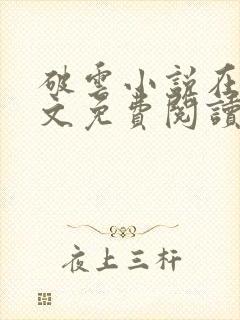 破雲小説在
文免費閱讀
夜上三杆